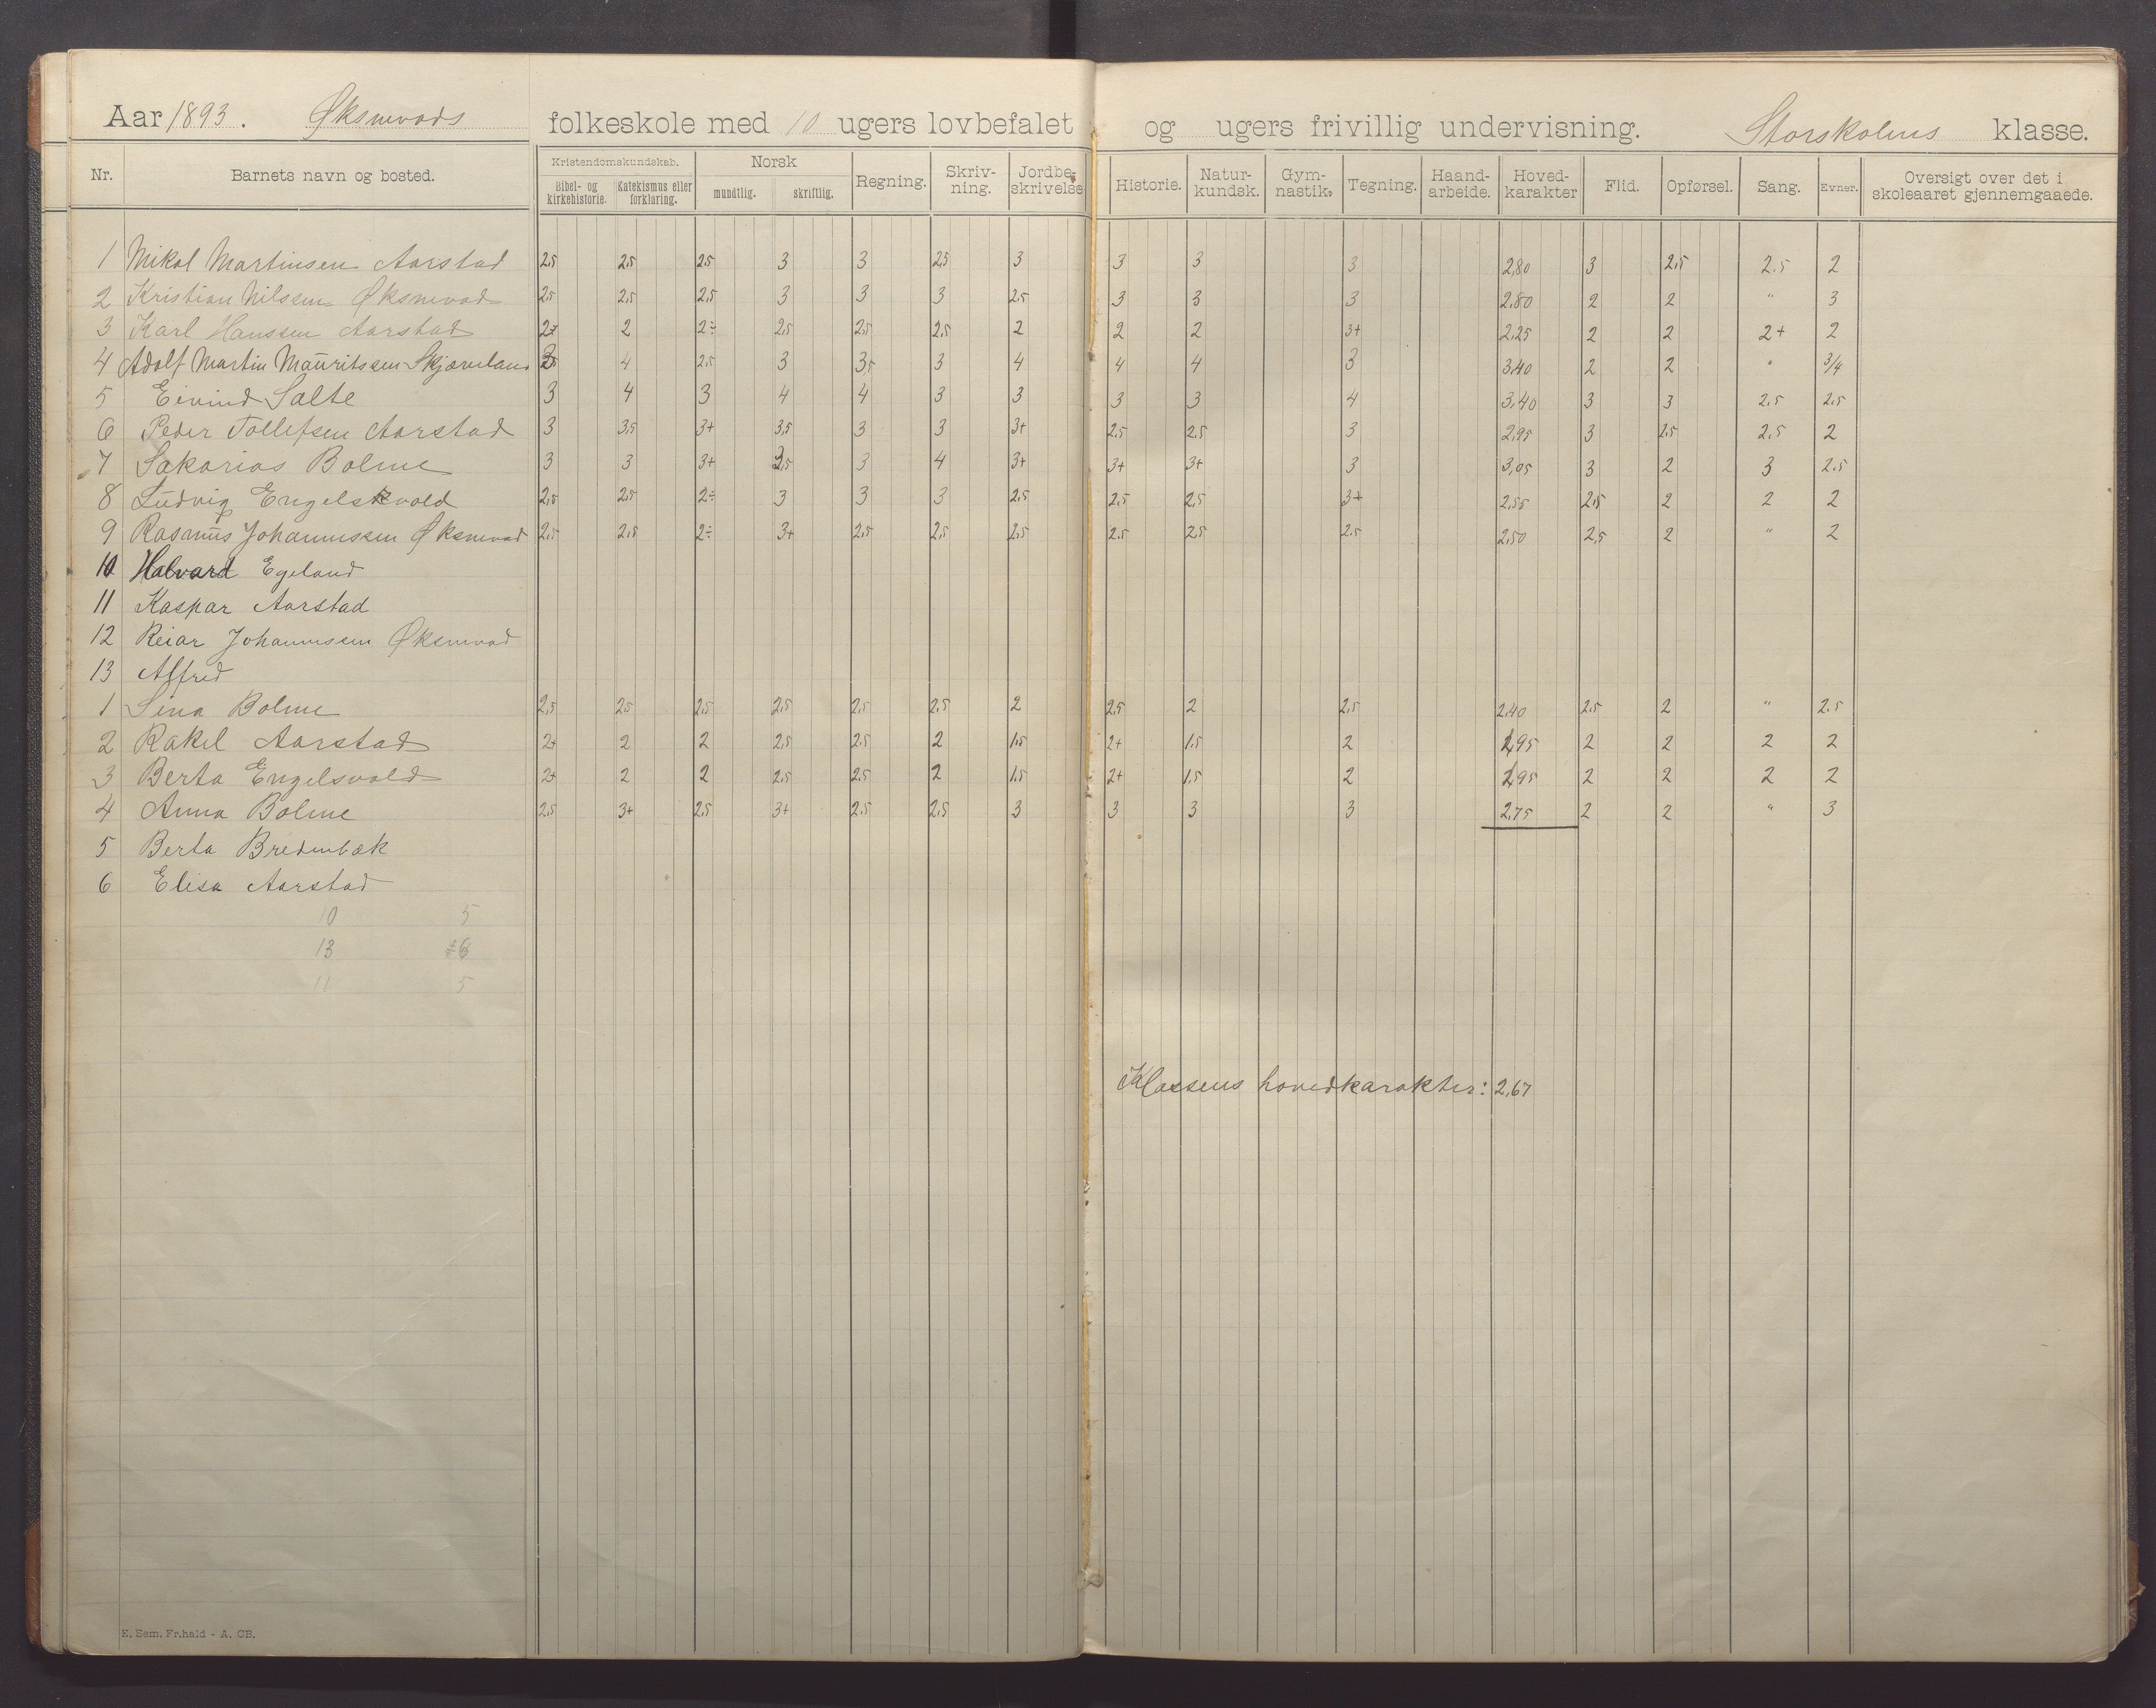 Aar 1893. Øksnevads folkeskole med 10 ugers lovbefalet og ugers frivillig undervisning. Storskolens klasse.
Nr. Barnets navn og bosted. Kristendomskundskab. Bibel- og kirkehistorie. Katekismus eller forklaring. Norsk mundtlig. skriftlig. Regning. Skriv-ning. Jordbe-skrivelse Historie. Natur-kundsk. Gym-nastik. Tegning. Haand-arbeide. Hoved-karakter Flid. Opførsel. Sang. Evner. Oversigt over det i skoleaaret gjennemgaaede.
1 Mikal Martinsen Aarstad 2,5 2,5 2,5 3 3 2,5 3 3 3 3 2,80 3 2,5 2.5 2
2 Kristian Nilssen Øksnevad 2,5 2,5 2,5 3 3 3 2,5 3 3 3 2.80 2 2 " 3
3 Karl Hanssen Aarstad 2+ 2 2÷ 2,5 2,5 2,5 2 2 2 3+ 2,25 2 2 2+ 2
4 Adolf Martin Mauritssen Skjæveland 4 2,5 3 3,5 3 4 4 4 3 3,40 2 2 " 3/4
5 Eivind Salte 3 4 3 4 4 3 3 3 3 4 3,40 3 3 2,5 2,5
6 Peder Tollefsen Aarstad 3 3,5 3+ 3,5 3 3 3+ 2,5 2,5 3 2,95 3 2,5 2,5 2
7 Sakarias Bolme 3 3 3+ 3,5 3 4 3+ 3+ 3+ 3 3,05 3 2 3 2.5
8 Ludvig Engelsvold 2,5 2,5 2÷ 3 3 3 2,5 2,5 2,5 3+ 2,55 2,5 2 2 2
9 Rasmus Johannessen Øksnevad 2,5 2,5 2÷ 3+ 2,5 2,5 2,5 2.5 2,5 2.5 2,50 2,5 2 " 2
10 Halvard Egeland
11 Kaspar Aarstad
12 Reiar Johannessen Øksnevad
13 Alfred
1 Sina Bolme 2,5 2,5 2,5 2,5 2,5 2,5 2 2,5 2 2,5 2,40 2.5 2 " 2.5
2 Rakel Aarstad 2+ 2 2 2,5 2.5 2 1,5 2+ 1.5 2 1,95 2 2 2 2
3 Berta Engelsvold 2+ 2 2 2,5 2.5 2 1,5 2+ 1,5 2 1,95 2 2 2 2
4 Anna Bolme 2,5 3+ 2,5 3+ 2.5 2,5 3 3 3 3 2,75 2 2 " 3
5 Berta Bredenbæk
6 Elisa Aarstad
10 5
13 6
11 5
Klassens hovedkarakter: 2,67
K. Sem. Fr.hald - A. CB.